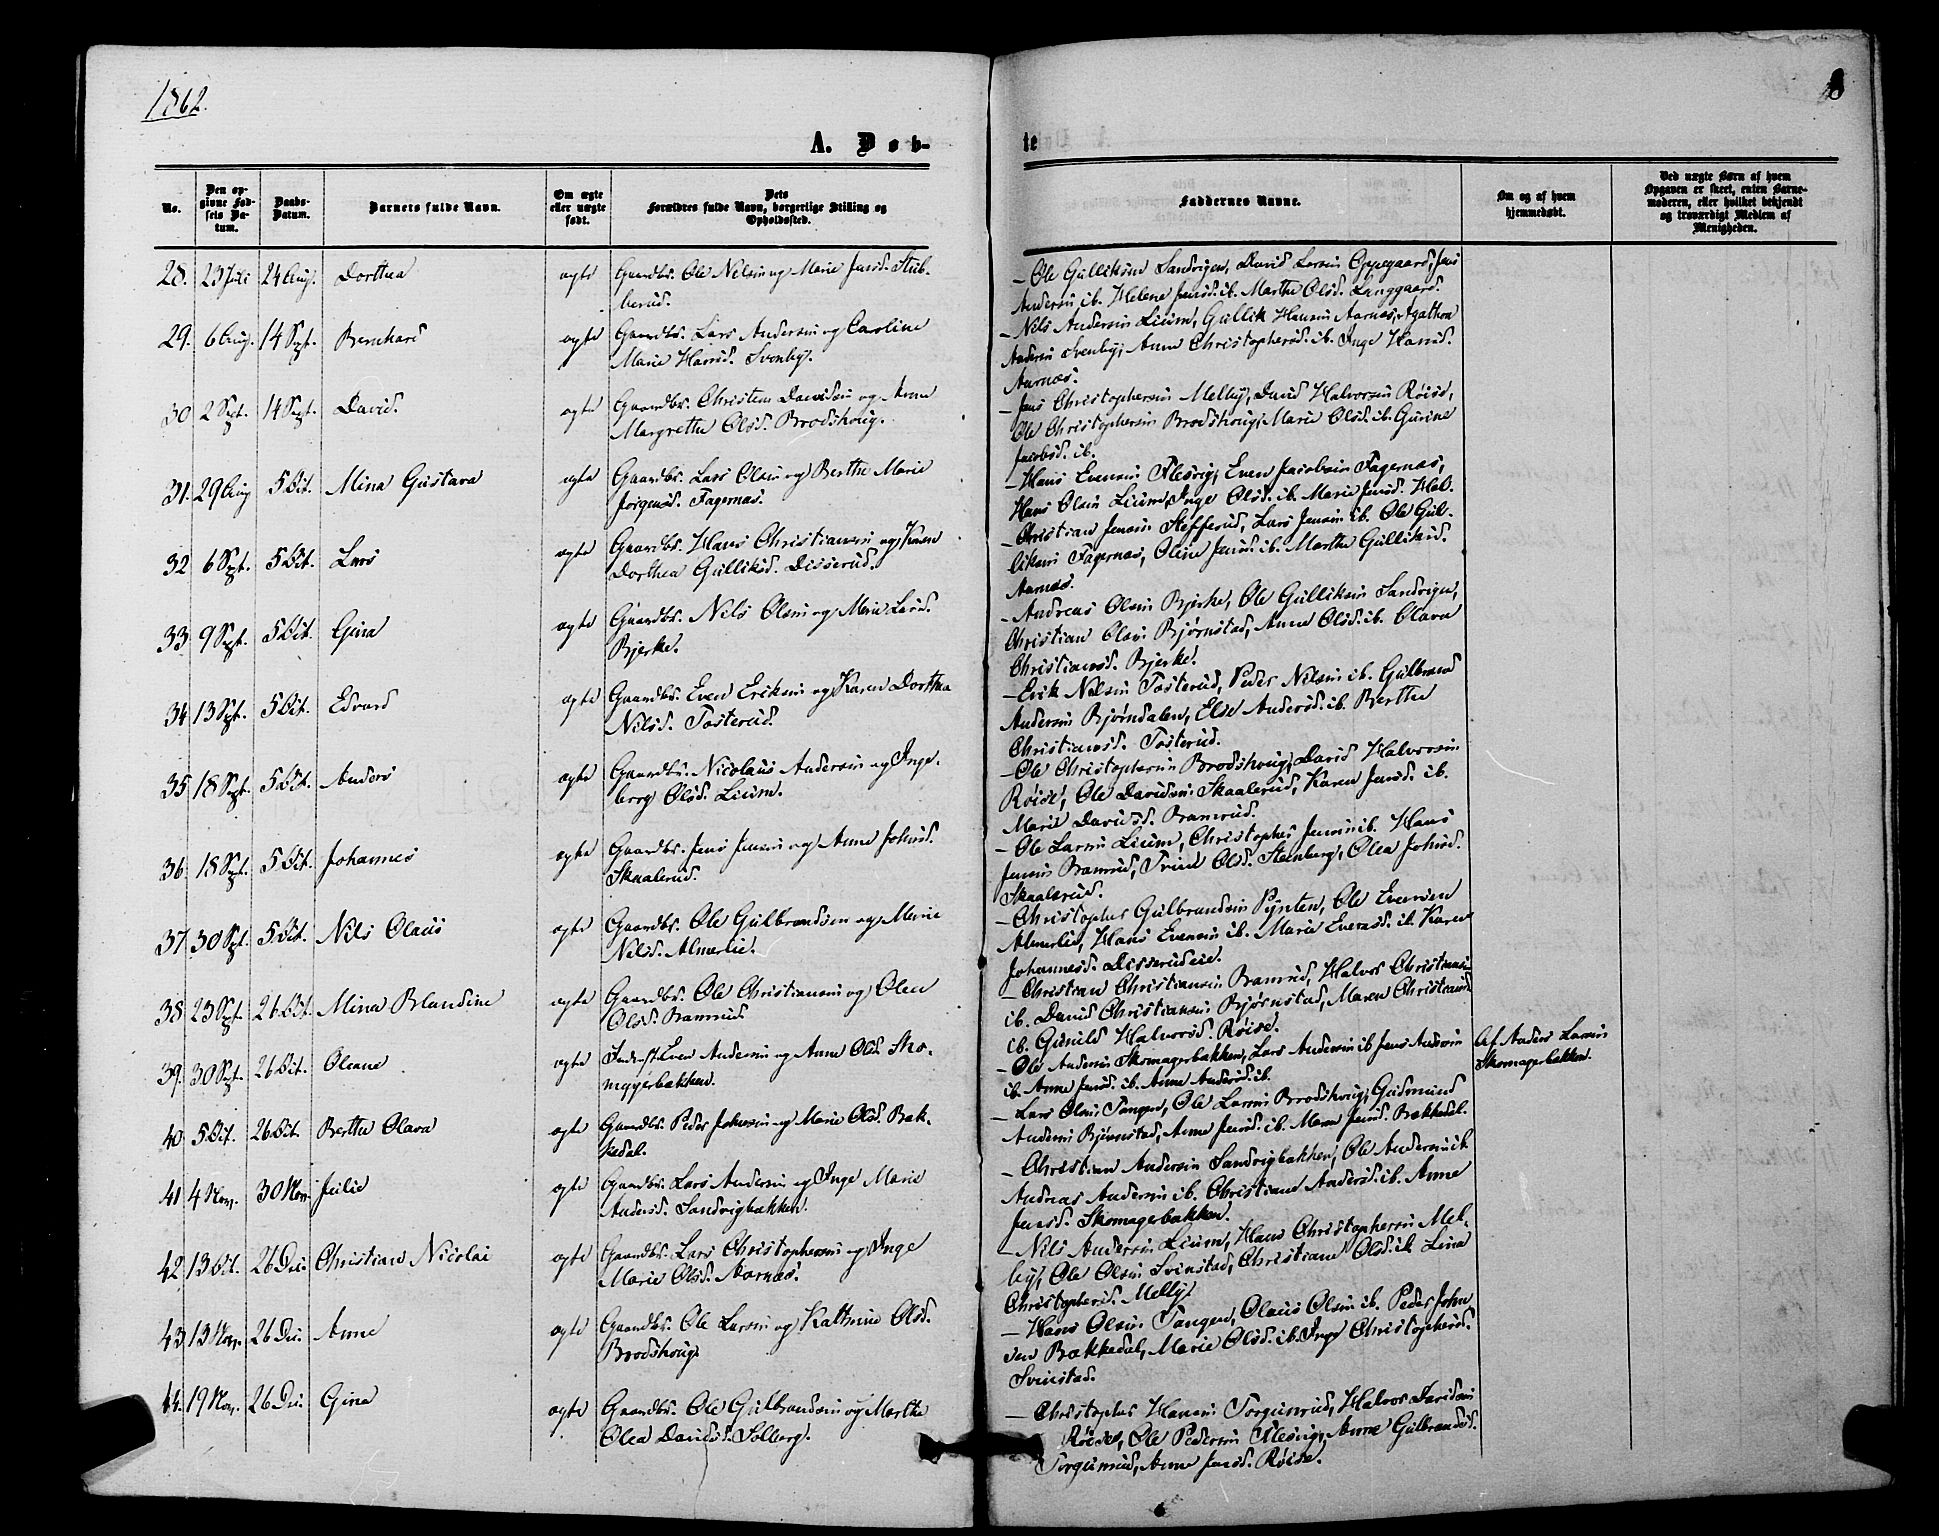 1862.
8
A. Døb-
te
No.
Den op-
givne Fød-
sels Da-
tum.
Daabs-
Datum.
Barnets fulde Navn.
Om ægte
eller uægte
født.
Dets
Forældres fulde Navn, borgerlige Stilling og
Opholdssted.
Faddernes Navne.
Om og af hvem
hjemmedøbt.
Ved uægte Børn af hvem
Opgaven er skeet, enten Barne-
moderen, eller hvilket bekjendt
og troværdigt Medlem af
Menigheden.
28. 23 Juli 24 Aug. Dorthea ægte Gaardbr. Ole Nilsen og Marie Jensd. Stub-
berud.
— Ole Gulliksen Sandvigen, David Larsen Oppegaard, Jens
Andersen ib. Helene Jensd. ib. Marthe Olsd. Langgaard.
29. 6 Aug. 14 Sept. Bernhard ægte Gaardbr. Lars Andersen og Caroline
Marie Hansd. Svenby.
— Nils Andersen Lium, Gullik Hansen Aarnæs, Agathon
Andersen Svenby, Anne Christophersd. ib. Inge Hansd.
Aarnæs.
30 2 Sept. 14 Sept. David. ægte Gaardbr. Christian Davidsen og Anne
Margrethe Olsd. Brodshoug.
— Jens Christophersen Melby, David Halvorsen Röise,
Ole Christophersen Brodshoug, Marie Olsd. ib. Gurine
Jacobsd. ib.
31. 29 Aug 5 Oct. Mina Gustava ægte Gaardbr. Lars Olsen og Berthe Marie
Jørgensd. Fagernæs.
— Hans Evensen Flesvig, Even Jacobsen Fagernæs,
Hans Olsen Lium, Inge Olsd. ib. Marie Jensd. Hval.
32 6 Sept. 5 Oct. Lars ægte Gaardbr. Hans Christiansen og Karen
Dorthea Gulliksd. Disserud.
— Christian Jensen Stefferud, Lars Jensen ib. Ole Gul-
liksen Fagernæs, Oline Jensd. ib. Marthe Gulliksd.
Aarnæs.
33 9 Sept. 5 Oct. Gina ægte Gaardbr. Nils Olsen og Marie Larsd.
Bjerke.
— Andreas Olsen Bjerke, Ole Gulliksen Sandvigen,
Christian Olsen Bjørnstad, Anne Olsd. ib. Olava
Christiansd. Bjerke.
34 13 Sept. 5 Oct. Edvard ægte Gaardbr. Even Eriksen og Karen Dorthea
Nilsd. Tosterud.
— Erik Nilsen Tosterud, Peder Nilsen ib. Gulbrand
Andersen Bjørndalen, Else Andersd. ib. Berthe
Christiansd. Tosterud.
35 18 Sept. 5 Oct. Anders ægte Gaardbr. Nicolaus Andersen og Inge-
borg Olsd. Lium.
— Ole Christophersen Brodshoug, David Halvorsen
Röise, Ole Davidsen Skaalerud, Karen Jensd. ib.
Marie Davidsd. Bramrud.
36 18 Sept. 5 Oct. Johannes ægte Gaardbr. Jens Jensen og Anne Johnsd.
Skaalerud.
— Ole Larsen Lium, Christopher Jensen ib. Hans
Jensen Bamrud, Trine Olsd. Steenberg, Olea Johnsd.
Skaalerud.
37 30 Sept. 5 Oct. Nils Olaus ægte Gaardbr. Ole Gulbrandsen og Marie
Nilsd. Almerlie.
— Christopher Gulbrandsen Pynten, Ole Evensen
Almerlie, Hans Evensen ib. Marie Evensd. ib. Karen
Johannesd. Disserudeie.
38 23 Sept. 26 Oct. Mina Blandine ægte Gaardbr. Ole Christiansen og Olea
Olsd. Bamrud
— Christian Christiansen Bramrud, Halvor Christiansen
ib. David Christiansen Bjørnstad, Maren Christiansd.
ib. Gunild Halvorsd. Röise.
39. 30 Sept. 26 Oct. Oleane ægte Inderst Even Andersen og Anne Olsd. Sko-
magerbakken.
— Ole Andersen Skomagerbakken, Lars Andersen ib Jens Andersen
ib. Anne Jensd. ib. Anne Andersd. ib.
Af Anders Larsen
Skomagerbakken.
40 5 Oct. 26 Oct. Berthe Olava ægte Gaardbr. Peder Johnsen og Marie Olsd. Bæk-
kedal.
— Lars Olsen Tangen, Ole Larsen Brodshoug, Gudmund
Andersen Bjørnstad, Anne Jensd. ib. Maren Jensd. Bækkedal.
41 4 Nov. 30 Nov. Julie ægte Gaardbr. Lars Andersen og Inge Marie
Andersd. Sandvigbakken.
— Christian Andersen Sandvigbakken, Ole Andersen ib.
Andreas Andersen ib. Christiane Andersd. ib. Anne
Jensd. Skomagerbakken.
42 13 Oct. 26 Dec. Christian Nicolai ægte Gaardbr. Lars Christophersen og Inge
Marie Olsd. Aarnæs.
— Nils Andersen Lium, Hans Christophersen Mel-
by, Ole Olsen Svinstad, Christiane Olsd. ib. Lina
Christophersd. Melby.
43 13 Nov. 26 Dec. Anne ægte Gaardbr. Ole Larsen og Kathrine Olsd.
Brodshoug.
— Hans Olsen Tangen, Olaus Olsen ib. Peder John-
sen Bækkedal, Marie Olsd. ib. Inge Christophersd.
Svinstad.
44. 19 Nov. 26 Dec. Gina ægte Gaardbr. Ole Gulbrandsen og Marthe
Olea Davidsd. Solberg.
— Christopher Hansen Torgunrud, Halvor Davidsen
Röise, Ole Pedersen Flesvig, Anne Gulbrandsd.
Torgunrud, Anne Jensd. Röise.